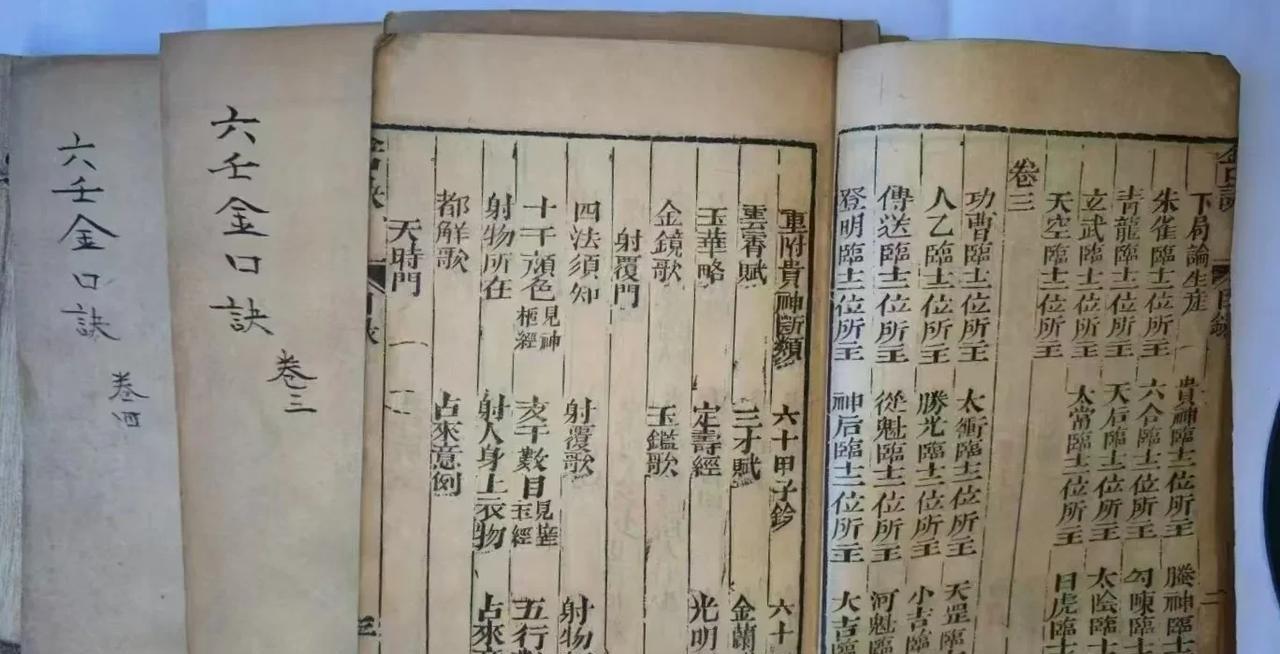 下局論生産 貴神臨十二位所主 螣神臨十二
朱雀臨十二位所主 六合臨十二位所主 勾陳臨十二
青龍臨十二位所主 天后臨十二位所主 太陰臨十二
玄武臨十二位所主 太常臨十二位所主 白虎臨十二
天空臨十二位所主
卷三
功曹臨十二位所主 太衝臨十二位所主 天罡臨
人乙臨十二位所主 勝光臨十二位所主 小吉臨
傳送臨十二位所主 從魁臨十二位所主 河魁臨
登明臨十二位所主 神后臨十二位所主 大吉臨
重附貴神新類 六十甲子鈐 六十
雲霄賦 三才賦 金蘭
玉華略 定壽經 光明
金鏡歌 玉鑑歌
射覆門
四法須知 射覆歌 射物
十干顏色 見神樞經 亥子數目 見華玉經 五行
射物所在 射人身上衣物 占來
都解歌 占來意例
天時門
三
六壬金口訣
卷三
六壬金口訣
卷四